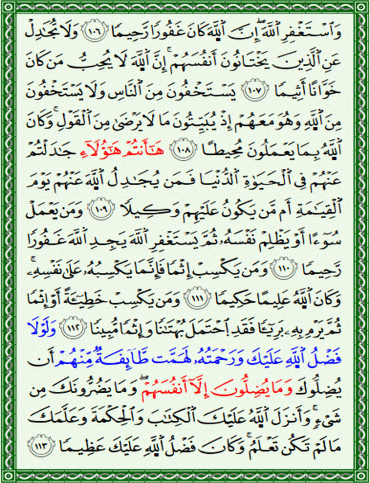 وَاسْتَغْفِرِ اللَّهَ ۖ إِنَّ اللَّهَ كَانَ غَفُورًا رَّحِيمًا ١٠٦ وَلَا تُجَادِلْ
عَنِ الَّذِينَ يَخْتَانُونَ أَنفُسَهُمْ ۚ إِنَّ اللَّهَ لَا يُحِبُّ مَن كَانَ
خَوَّانًا أَثِيمًا ١٠٧ يَسْتَخْفُونَ مِنَ النَّاسِ وَلَا يَسْتَخْفُونَ
مِنَ اللَّهِ وَهُوَ مَعَهُمْ إِذْ يُبَيِّتُونَ مَا لَا يَرْضَىٰ مِنَ الْقَوْلِ ۚ وَكَانَ
اللَّهُ بِمَا يَعْمَلُونَ مُحِيطًا ١٠٨ هَٰأَنتُمْ هَٰؤُلَاءِ جَادَلْتُمْ
عَنْهُمْ فِي الْحَيَوٰةِ الدُّنْيَا فَمَن يُجَادِلُ اللَّهَ عَنْهُمْ يَوْمَ
الْقِيَامَةِ أَم مَّن يَكُونُ عَلَيْهِمْ وَكِيلًا ١٠٩ وَمَن يَعْمَلْ
سُوءًا أَوْ يَظْلِمْ نَفْسَهُ ثُمَّ يَسْتَغْفِرِ اللَّهَ يَجِدِ اللَّهَ غَفُورًا
رَّحِيمًا ١١٠ وَمَن يَكْسِبْ إِثْمًا فَإِنَّمَا يَكْسِبُهُ عَلَىٰ نَفْسِهِ ۚ
وَكَانَ اللَّهُ عَلِيمًا حَكِيمًا ١١١ وَمَن يَكْسِبْ خَطِيئَةً أَوْ إِثْمًا
ثُمَّ يَرْمِ بِهِ بَرِيئًا فَقَدِ احْتَمَلَ بُهْتَانًا وَإِثْمًا مُّبِينًا ١١٢ وَلَوْلَا
فَضْلُ اللَّهِ عَلَيْكَ وَرَحْمَتُهُ لَهَمَّت طَّائِفَةٌ مِّنْهُمْ أَن
يُضِلُّوكَ وَمَا يُضِلُّونَ إِلَّا أَنفُسَهُمْ ۖ وَمَا يَضُرُّونَكَ مِن
شَيْءٍ ۚ وَأَنزَلَ اللَّهُ عَلَيْكَ الْكِتَابَ وَالْحِكْمَةَ وَعَلَّمَكَ
مَا لَمْ تَكُن تَعْلَمُ ۚ وَكَانَ فَضْلُ اللَّهِ عَلَيْكَ عَظِيمًا ١١٣